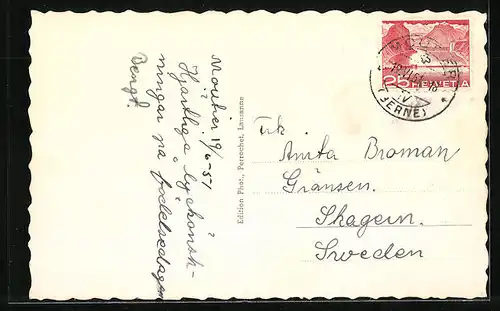 Moutier 19/6-51
Hjärtliga lyckönsk-
ningar på födelsedagen
Bengt.
Edition Phot., Perrochet, Lausanne
25 HELVETIA
(BERNE)
Frk.
Anita Broman
Gränsen.
Skagern.
Sweden